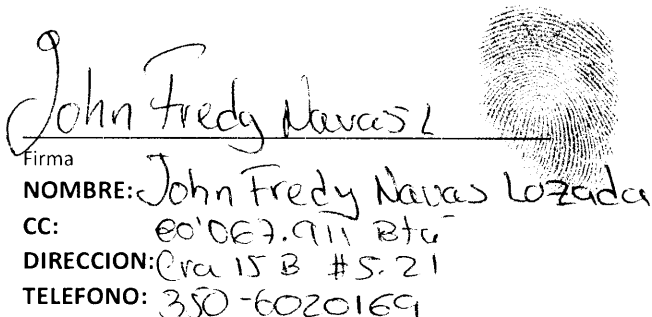 John Fredy Navas L
Firma
NOMBRE: John Fredy Navas Lozada
CC: 80'067.911 Bta
DIRECCION: Cra 15 B #5.21
TELEFONO: 350-6020169